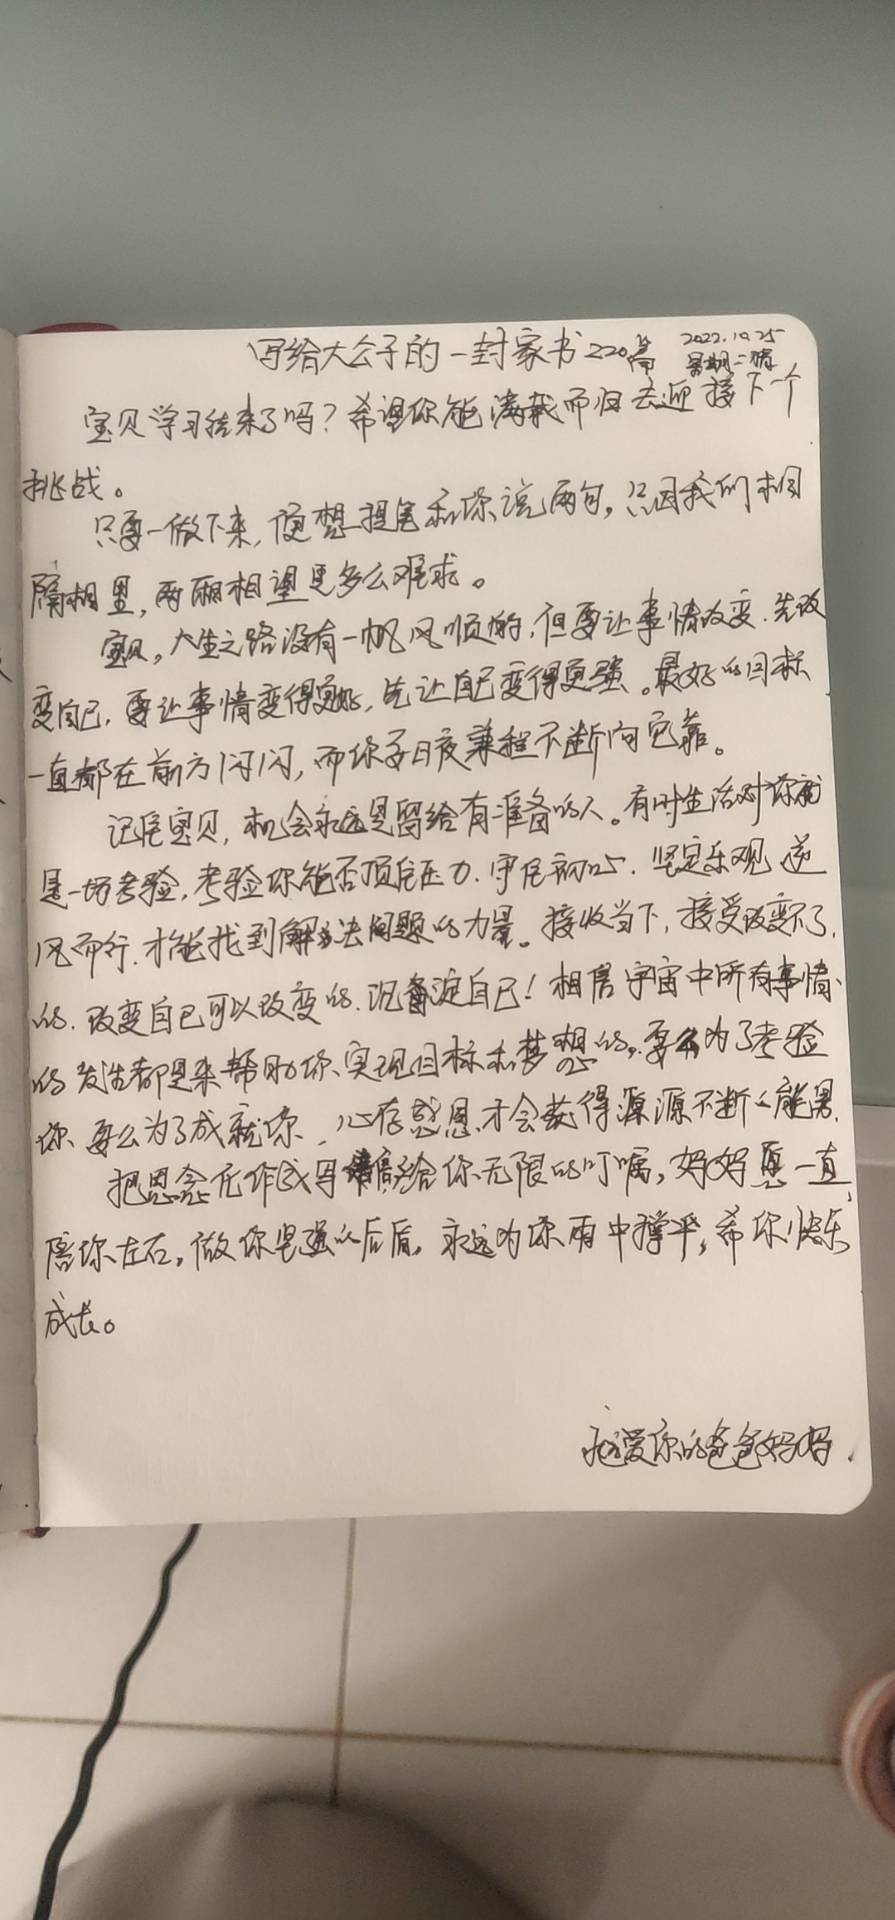 写给大公子的一封家书220篇 2022.10.25
星期二 晴
宝贝学习结束了吗？希望你能满载而归去迎接下一个
挑战。
只要一做下来，便想提笔和你说两句，只因我们相
隔相里，两两相望是多么难求。
宝贝，人生之路没有一帆风顺的，但要让事情改变，先改
变自己，要让事情变得更好，先让自己变得更强。最好的目标
一直都在前方闪闪，而你每日夜兼程不断向它靠。
记住宝贝，机会永远是留给有准备的人。有时生活对你就
是一场考验，考验你能否顶住压力，守住初心，坚定乐观逆
风而行，才能找到解决问题的力量。接收当下，接受改变不了
的，改变自己可以改变的，沉淀自己！相信宇宙中所有事情
的发生都是来帮助你、实现目标和梦想的，要么为了考验
你、要么为了成就你，心存感恩，才会获得源源不断的能量。
把思念化作成写给你无限的叮嘱，妈妈愿一直
陪你左右，做你坚强的后盾，永远为你雨中撑伞，希你快乐
成长。
永远爱你的爸爸妈妈